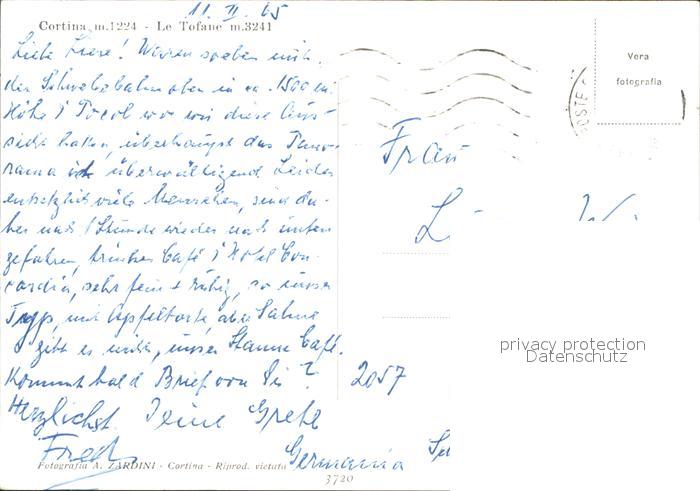 11. II. 65
Cortina m.1224 - Le Tofane m.3241
Vera
fotografia
POSTE
Liebe Liese! Waren soeben mit
der Schwebebahn oben in ca. 1500 m
Höhe i Pocol wo wir diese Aus-
sicht hatten, überhaupt das Pano-
rama ist überwältigend. Leider
entsetzlich viele Menschen, sind da-
her nach 1 Stunde wieder nach unten
gefahren, trinken Café i Hotel Con-
cordia, sehr fein + ruhig, so unser
Typ, mit Apfeltorte, aber Sahne
gibt es nicht, unser Stamm Café.
Kommt bald Brief von Dir?
Herzlichst Deine Grete
Fred
Frau
L
2057
Germania
privacy protection
Datenschutz
Fotografia A. ZARDINI - Cortina - Riprod. vietata
3720